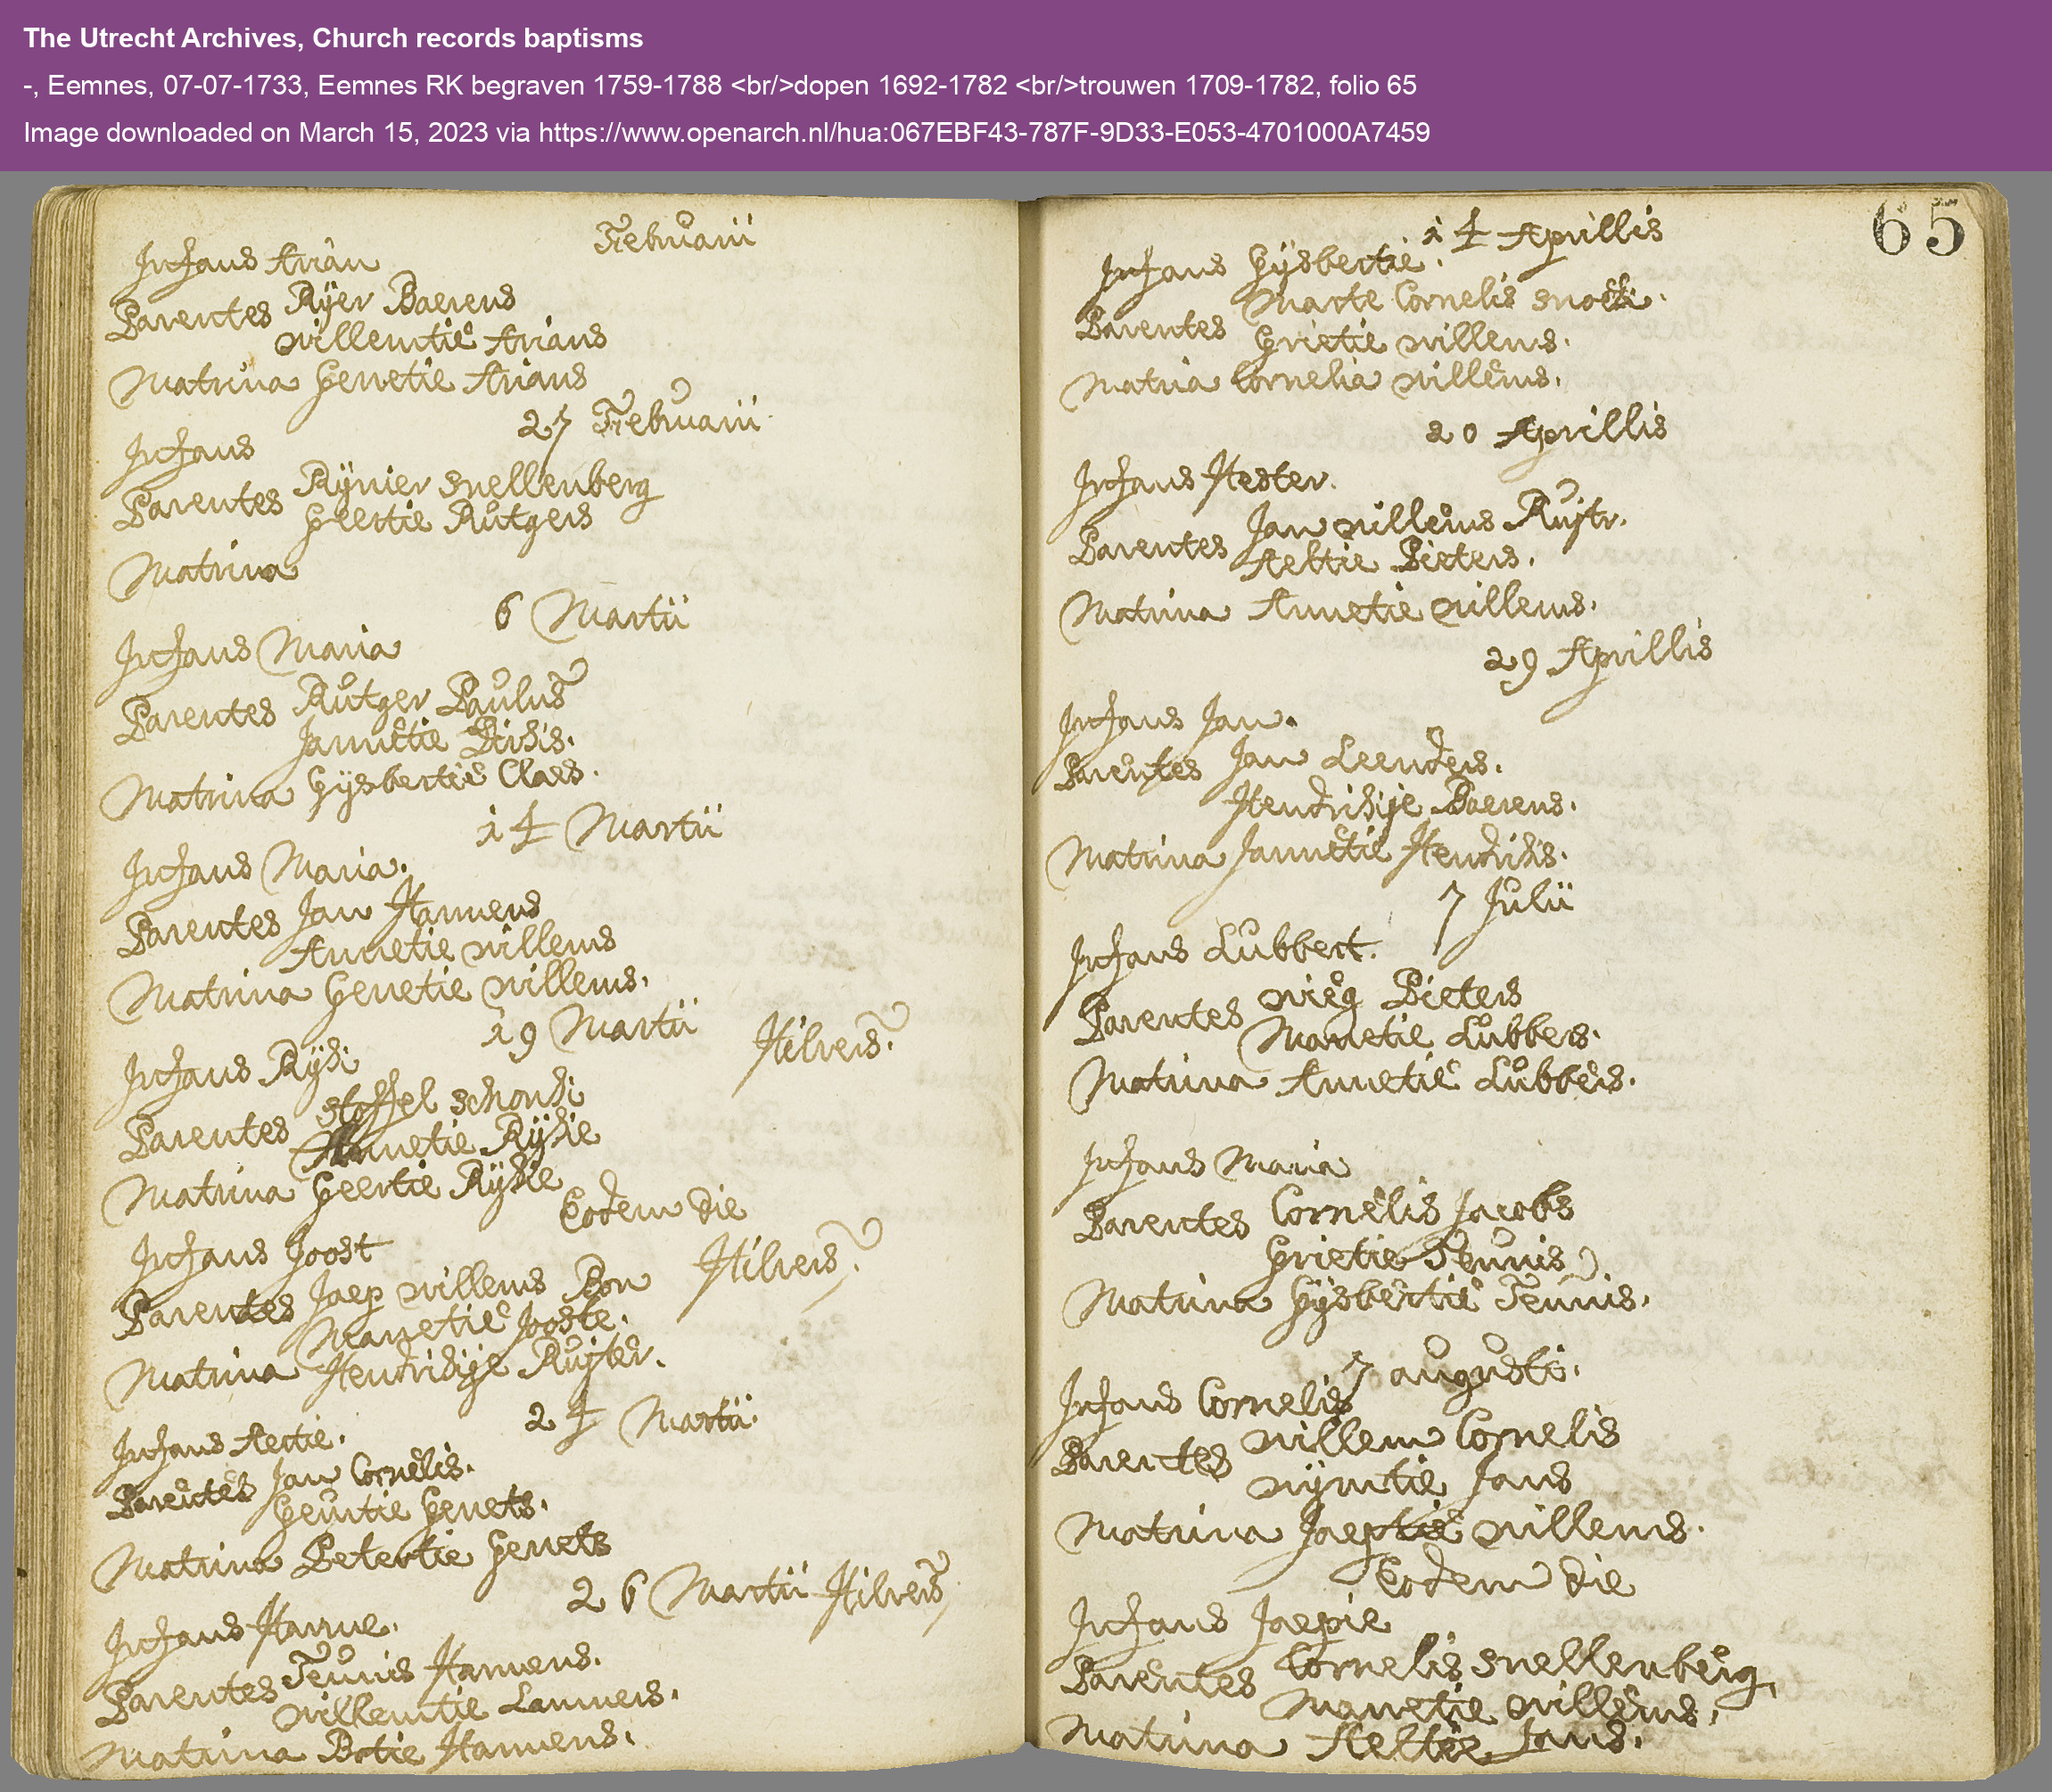 The Utrecht Archives, Church records baptisms
-, Eemnes, 07-07-1733, Eemnes RK begraven 1759-1788 <br/>dopen 1692-1782 <br/>trouwen 1709-1782, folio 65
Image downloaded on March 15, 2023 via https://www.openarch.nl/hua:067EBF43-787F-9D33-E053-4701000A7459
Februarii
Infans Arian
Parentes Rÿer Baerens
willemtie Arians
Matrina Gerretie Arians
27 Februarii
Infans
Parentes Rÿnier snellenberg
Geertie Rutgers
Matrina
6 Martii
Infans Maria
Parentes Rutger Paulus
Jannetie Dirks.
Matrina Gijsbertie Claes.
14 Martii
Infans Maria.
Parentes Jan Harmens
Annetie willems
Matrina Gerretie willems.
19 Martii
Hilvers.
Infans Rÿk
Parentes stoffel schonk
Annetie Rÿkie
Matrina Geertie Rÿkie
Eodem die
Infans Joost
Hilvers.
Parentes Jaep willems Bon
Marretie Jooste.
Matrina Hendrikije Ruijter.
24 Martii
Infans Aertie.
Parentes Jan Cornelis.
Geurtie Gerrets.
Matrina Petertie Gerrets
26 Martii Hilvers
Infans Harme.
Parentes Teunis Harmens.
willemtie Lammers.
Matrina Harmens.
65
14 Aprillis
Infans Gÿsbertie.
Marte Cornelis snoek.
Parentes Grietie willems.
Matria Cornelia willems.
20 Aprillis
Infans Hester.
Parentes Jan willems Ruijtr.
Aeltie Pieters.
Matrina Annetie willems.
29 Aprillis
Infans Jan.
Parentes Jan Leenders.
Hendrikije Baerens.
Matrina Jannetie Hendriks.
7 Julii
Infans Lubbert.
Parentes Pieters
Marretie Lubbers.
Matrina Annetie Lubbers.
Infans Maria
Parentes Cornelis Jacobs
Grietie Teunis
Matrina Gÿsbertie Teunis.
7 augusti.
Infans Cornelis
Parentes willem Cornelis
wijmtie Jans
Matrina Jaeptie willems.
Eodem die
Infans Jaepie
Parentes Cornelis snellenberg,
Marretie willems,
Matrina Aeltie Jans.